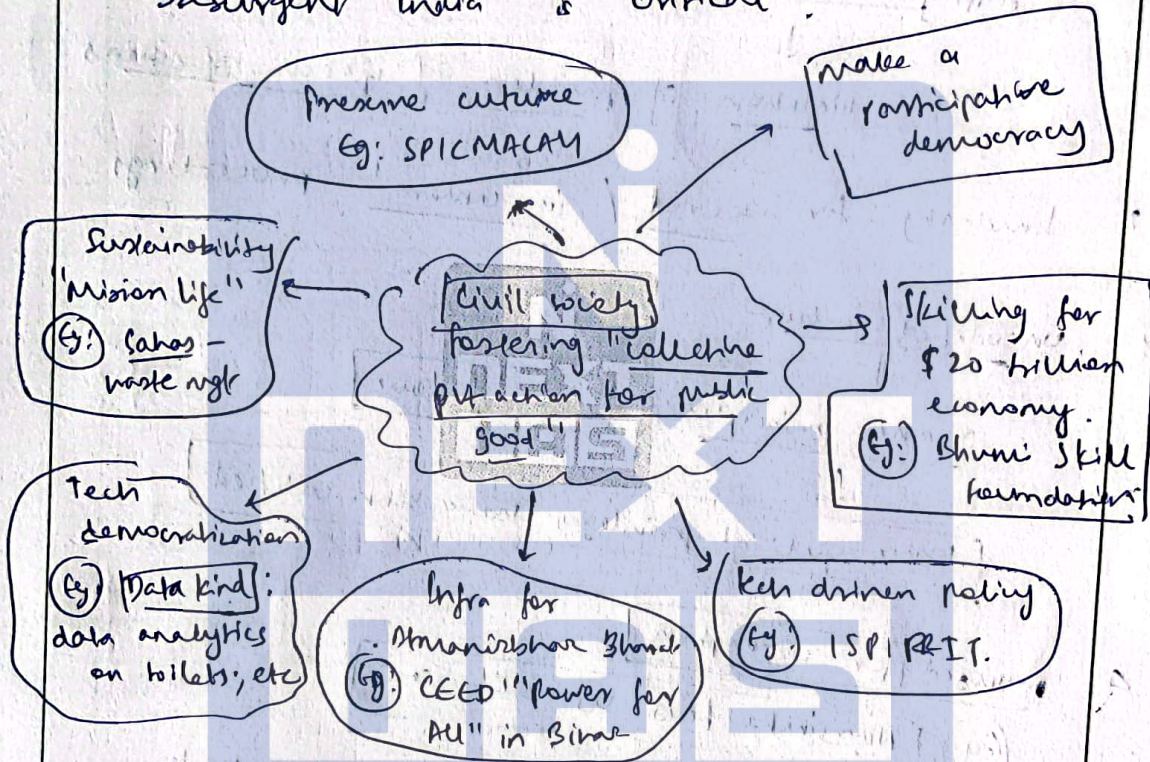 India & critical.
Preserve culture
Eg: SPICMACAY
Make a
participative
democracy
Sustainability
"Mission life"
Eg: Sahas –
waste mgt
Civil society
fostering "collective
pvt action for public
good"
Skilling for
$ 20 trillion
economy.
Eg: Bhumi Skill
foundation
Tech
democratization
Eg: Data Kind:
data analytics
on toilets, etc
Infra for
Atmanirbhar Bharat
Eg: CEED "power for
All" in Bihar
tech driven policy
Eg: ISPIRIT.
NEXT
IAS